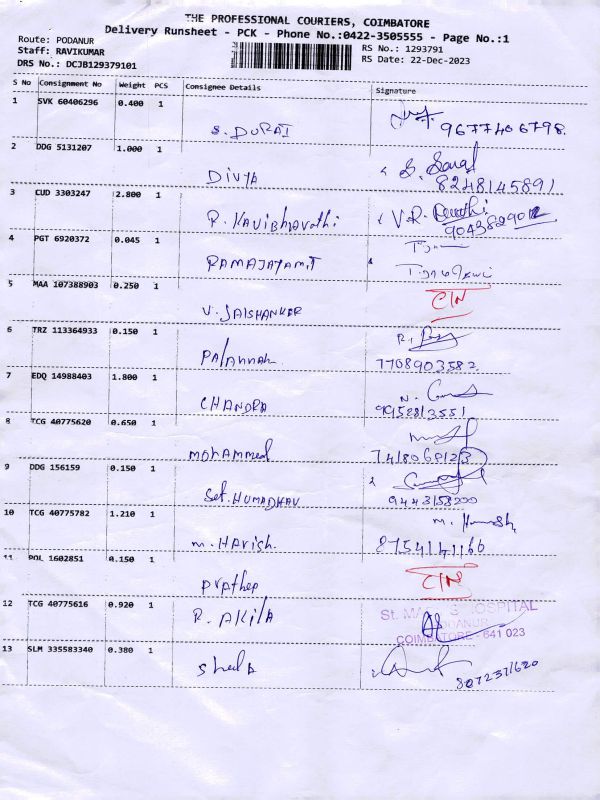 THE PROFESSIONAL COURIERS, COIMBATORE
Delivery Runsheet - PCK - Phone No.:0422-3505555 - Page No.:1
Route: PODANUR
Staff: RAVIKUMAR
DRS No.: DCJB129379101
RS No.: 1293791
RS Date: 22-Dec-2023
S No Consignment No Weight PCS Consignee Details Signature
1 SVK 60406296 0.400 1
S. DURAI 9677406798.
2 DDG 5131207 1.000 1
DIVYA 8248145891
3 CUD 3303247 2.800 1
R. Kavibharathi V.R.
4 PGT 6920372 0.045 1
5 MAA 107388903 0.250 1
V. JAISHANKER
6 TRZ 113364933 0.150 1
7708903582
7 EDQ 14988403 1.800 1
CHANDRA 9952813551
8 TCG 40775620 0.650 1
MOHAMMED
9 DDG 156159 0.150 1
10 TCG 40775782 1.210 1
M. Harish. 8754141166
11 POL 1602851 0.150 1
Prathep
12 TCG 40775616 0.920 1
R. AKILA
COIMBATORE - 641 023
13 SLM 335583340 0.380 1
SheelA